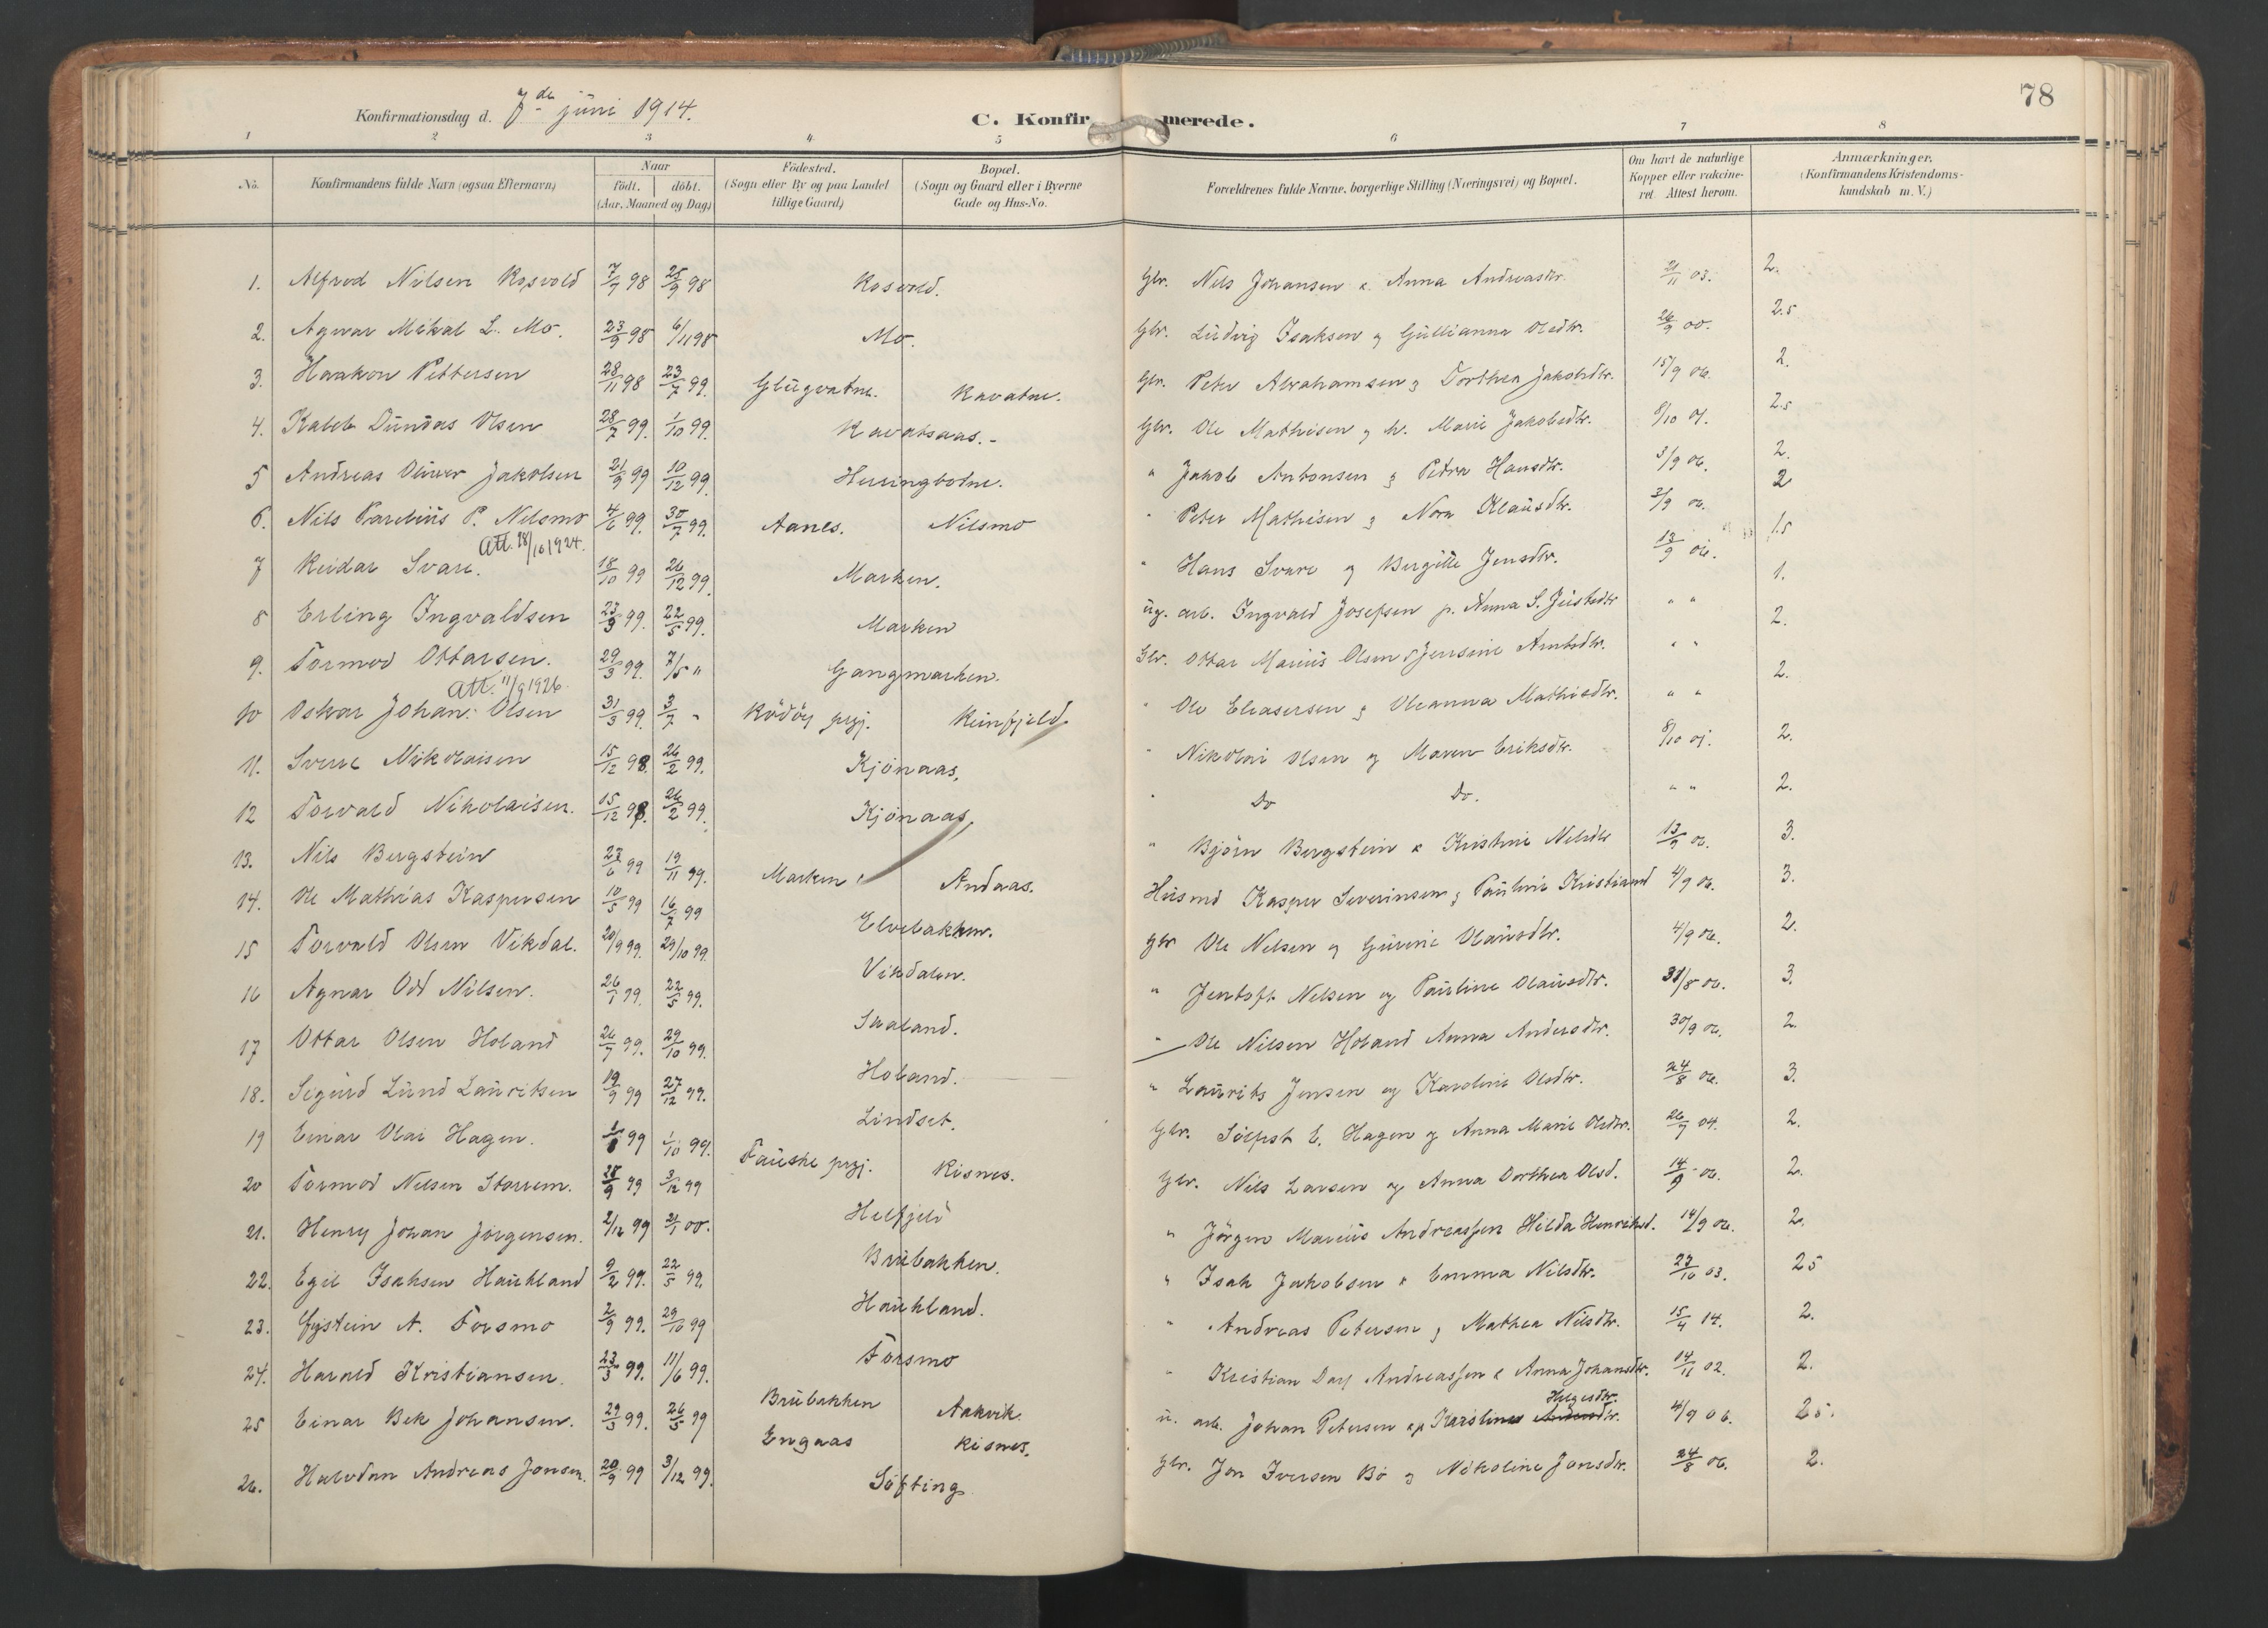 78
Konfirmationsdag d. 7de juni 1914.
C. Konfirmerede.
1 2 3 4 5 6 7 8
No. Konfirmandens fulde Navn (ogsaa Efternavn) Naar födt. döbt. (Aar, Maaned og Dag) Födested. (Sogn eller By og paa Landet tillige Gaard) Bopæl. (Sogn og Gaard eller i Byerne Gade og Hus-No. Forældrenes fulde Navne, borgerlige Stilling (Næringsvei) og Bopæl. Om havt de naturlige Kopper eller vakcineret. Attest herom. Anmærkninger. (Konfirmandens Kristendomskundskab m. V.)
1. Alfred Nilsen Rosvold 7/7 98 25/9 98 Rosvold. Gbr. Nils Johansen & Anna Andreasdtr. 21/11 03. 2.
2. Agnar Mikal L. Mo. 23/9 98 6/11 98 Mo. Gbr. Ludvig Isaksen og Gullianna Olsdtr. 26/9 00. 2.5
3. Haakon Pettersen 28/11 98 23/7 99. Glugvatne. Ravatne. Gbr. Peter Abrahamsen og Dorthea Jakobsdtr. 15/9 06. 2.
4. Kaleb Dundas Olsen 28/7 99. 1/10 99. Ravatsaas. Gbr. Ole Mathisen og h. Marie Jakobsdtr. 8/10 07. 2.5
5 Andreas Oliver Jakobsen 21/9 99 10/12 99. Husingbotne. " Jakob Antonsen og Petra Hansdtr. 3/9 06. 2.
6. Nils Parelius P. Nilsmo 4/6 99. 30/7 99. Aanes. Nilsmo " Peter Mathisen og Nora Klausdtr. 3/9 06. 2
Att. 28/10 1924.
7 Reidar Svare. 18/10 99 26/12 99. Marken. " Hans Svare og Bergitte Jensdtr. 13/9 06. 1.5
8 Erling Ingvaldsen 23/3 99. 22/5 99. Marken ug. arb. Ingvald Josefsen p. Anna S. Justsdtr " " 1.
9. Tormod Ottarsen. 29/3 99. 7/5 " Gangmarken. Gbr. Ottar Marius Olsen Jensine Arntsdtr. " " 2.
Att. 11/9 1926.
10 Oskar Johan Olsen 31/3 99. 3/7 " Rödöy prgj. Reinfjeld. " Ole Eleasersen og Oleanna Mathisdtr. " " 2.
11. Sverre Nikolaisen 15/12 98. 26/2 99. Kjönaas. " Nikolai Olsen og Maren Eriksdtr. 8/10 07. 2.
12 Torvald Nikolaisen. 15/12 98. 26/2 99. Kjönaas. " Do Do. " " 2.
13. Nils Bergstein 23/6 99 19/11 99. Marken Andaas. " Björn Bergstein & Kristine Nilsdtr 13/9 06. 3.
14. Ole Mathias Kaspersen 10/5 99 16/7 99 Elvebakken. Husmd Kasper Severinsen og Pauline Kristiansd 4/9 06. 3.
15 Torvald Olsen Vikdal. 20/9 99. 29/10 99. Vikdalen. Gbr Ole Nilsen og Gurine Olausdtr. 4/9 06. 2.
16 Agnar Odd Nilsen. 26/1 99. 22/5 99. Skaland. " Jentoft Nilsen og Pauline Olausdtr. 31/8 06. 3.
17 Ottar Olsen Holand 26/7 99. 29/10 99. Holand. " Ole Nilsen Holand Anna Andersdtr. 30/9 06. 2.
18. Sigurd Lund Lauritsen 19/9 99 27/12 99. Lindset. " Laurits Jensen og Karoline Olsdtr. 24/8 06. 3.
19 Einar Olai Hagen. 99 1/10 99. Fauske prgj. Risnes. Gbr. Sölfest E. Hagen og Anna Marie Olsdtr. 26/7 04. 2.
20 Tormod Nilsen Storrem. 28/9 99 3/12 99 Helfjeld Gbr. Nils Larsen og Anna Dorthea Olsd. 14/9 06. 2.
21. Henry Johan Jörgensen. 2/12 99 21/1 00. Brubakken. " Jörgen Marius Andreassen Hilda Henriksd. 14/9 06. 2.
22. Egil Isaksen Haukland 9/2 99. 22/5 99. Haukland. " Isak Jakobsen & Emma Nilsdtr. 23/10 03. 2.5
23. Öystein A. Forsmo 2/9 99. 29/10 99 Forsmo " Andreas Petersen og Mathea Nilsdtr. 15/4 14. 2.
24. Harald Kristiansen. 23/3 99. 11/6 99. Brubakken Aakvik. " Kristian Dav Andreassen & Anna Johansdtr. 14/11 02. 2.
25 Einar Bek Johansen. 29/3 99. 26/5 99 Engaas Risnes. u. arb. Johan Petersen Karoline Helgesdtr. 4/9 06. 2.5.
26. Halvdan Andreas Jonsen. 20/9 99 3/12 99. Söfting Gbr. Jon Iversen Bö og Nikoline Jonsdtr. 24/8 06. 2.